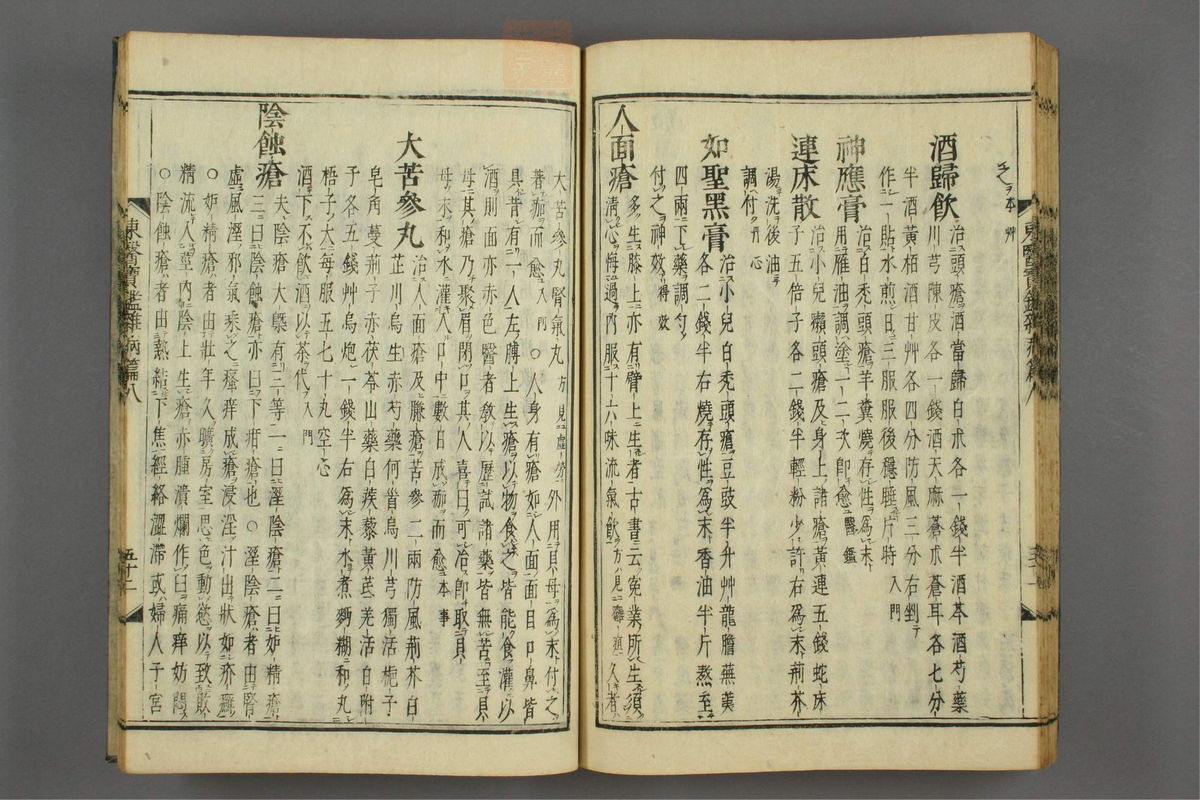 之ヲ本艸
酒歸飮 治頭瘡酒當歸白朮各一錢半酒芩酒芍藥
川芎陳皮各一錢酒天麻蒼朮蒼耳各七分
半酒黃栢酒甘艸各四分防風三分右剉
作一貼水煎日三服服後穩睡片時入門
神應膏 治白禿頭瘡羊糞燒存性爲末
用雁油調塗一二次卽愈醫鑑
連床散 治小兒癩頭瘡及身上諸瘡黃連五錢蛇床
子五倍子各二錢半輕粉少許右爲末荊芥
湯洗後油
調付丹心
如聖黑膏 治小兒白禿頭瘡豆豉半升艸龍膽蕪荑
各二錢半右燒存性爲末香油半斤熬至
四兩下藥調勻
付之神效得效
人面瘡 多生膝上亦有臂上生者古書云寃業所生須
淸心悔過內服十六味流氣飮方見癰疽久者
大苦參丸腎氣丸方見虛勞外用貝母爲末付之
著痂而愈入門○人身有瘡如人面面目口鼻皆
具昔有一人左膊上生瘡以物食之皆能食灌以
酒則面亦赤色醫者敎以歷試諸藥皆無苦至貝
母其瘡乃聚眉閉口其人喜曰可治卽取貝
母末和水灌入口中數日成痂而愈本事
大苦參丸 治人面瘡及臁瘡苦參二兩防風荊芥白
芷川烏生赤芍藥何首烏川芎獨活梔子
皂角蔓荊子赤茯苓山藥白蒺藜黃芪羌活白附
子各五錢艸烏炮一錢半右爲末水煮麪糊和丸
梧子大每服五七十丸空心
酒下不飮酒以茶代入門
陰蝕瘡 夫陰瘡大槩有三等一曰濕陰瘡二曰妬精瘡
三曰陰蝕瘡亦曰下疳瘡也○濕陰瘡者由腎
虛風濕邪氣乘之瘙痒成瘡浸淫汁出狀如疥癬
○妬精瘡者由壯年久曠房室思色動慾以致敗
精流入莖內陰上生瘡赤腫潰爛作臼痛痒妨悶
○陰蝕瘡者由熱結下焦經絡澀滯或婦人子宮
東醫寶鑑雜病篇八
五十二